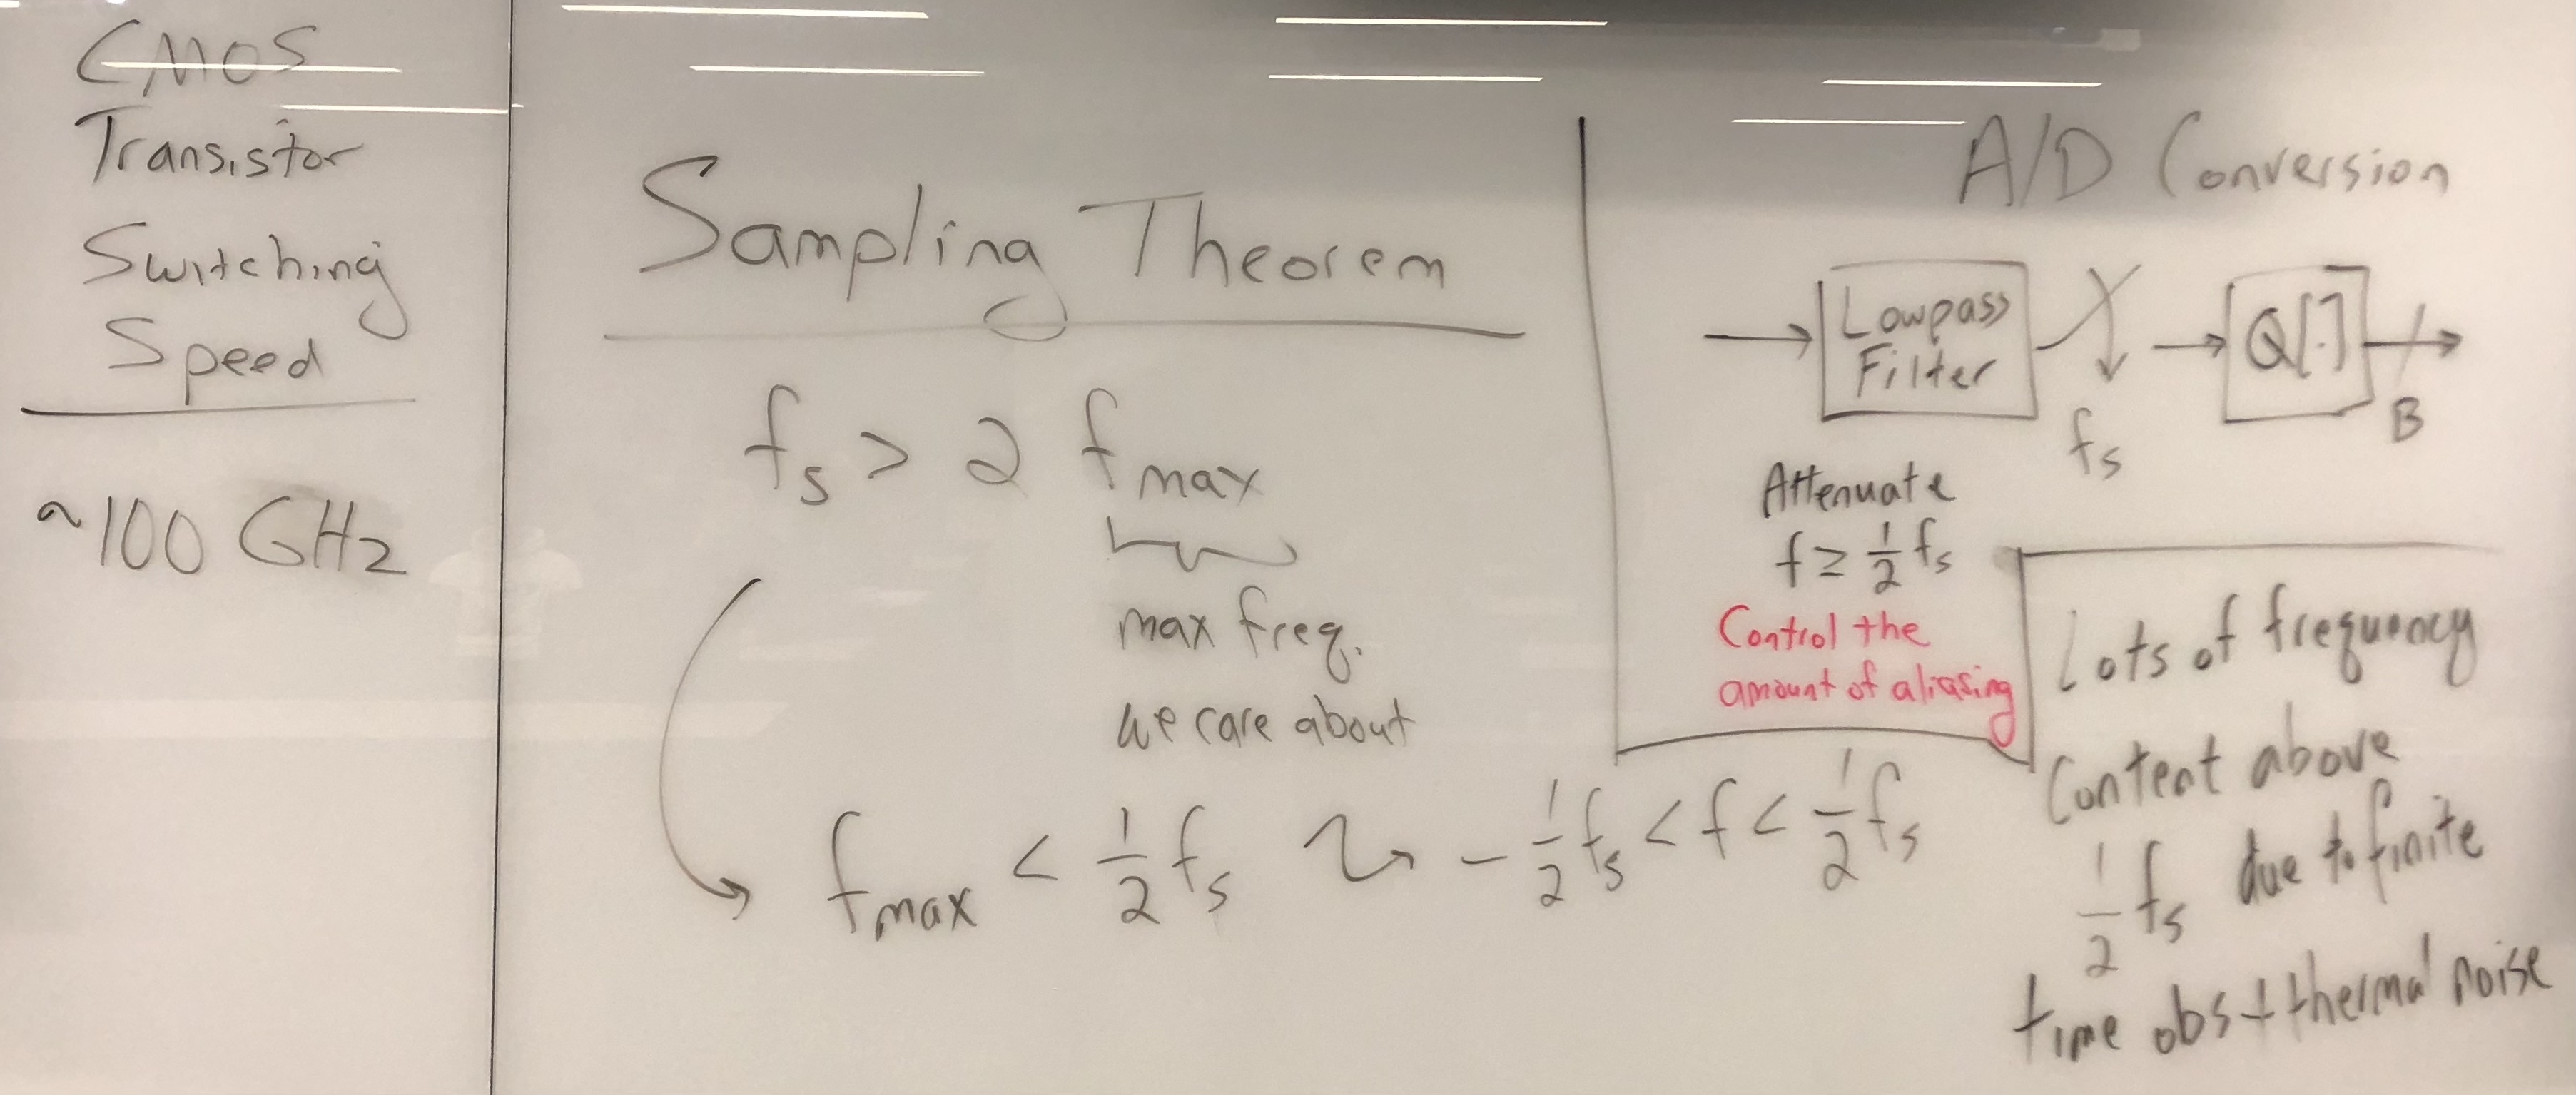 CMOS
Transistor
Switching
Speed
~100 GHz
Sampling Theorem
fs > 2 fmax
max freq.
we care about
fmax < 1/2 fs ⤳ -1/2 fs < f < 1/2 fs
A/D Conversion
Lowpass
Filter
fs
Q[.]
B
Attenuate
f ≥ 1/2 fs
Control the
amount of aliasing
Lots of frequency
Content above
1/2 fs due to finite
time obs + thermal noise